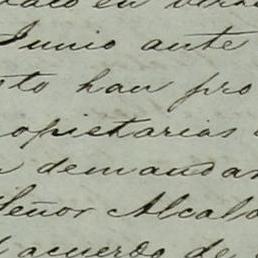 Junio ante
to han pro
opietarias
demandar
Señor Alcal
acuerdo de